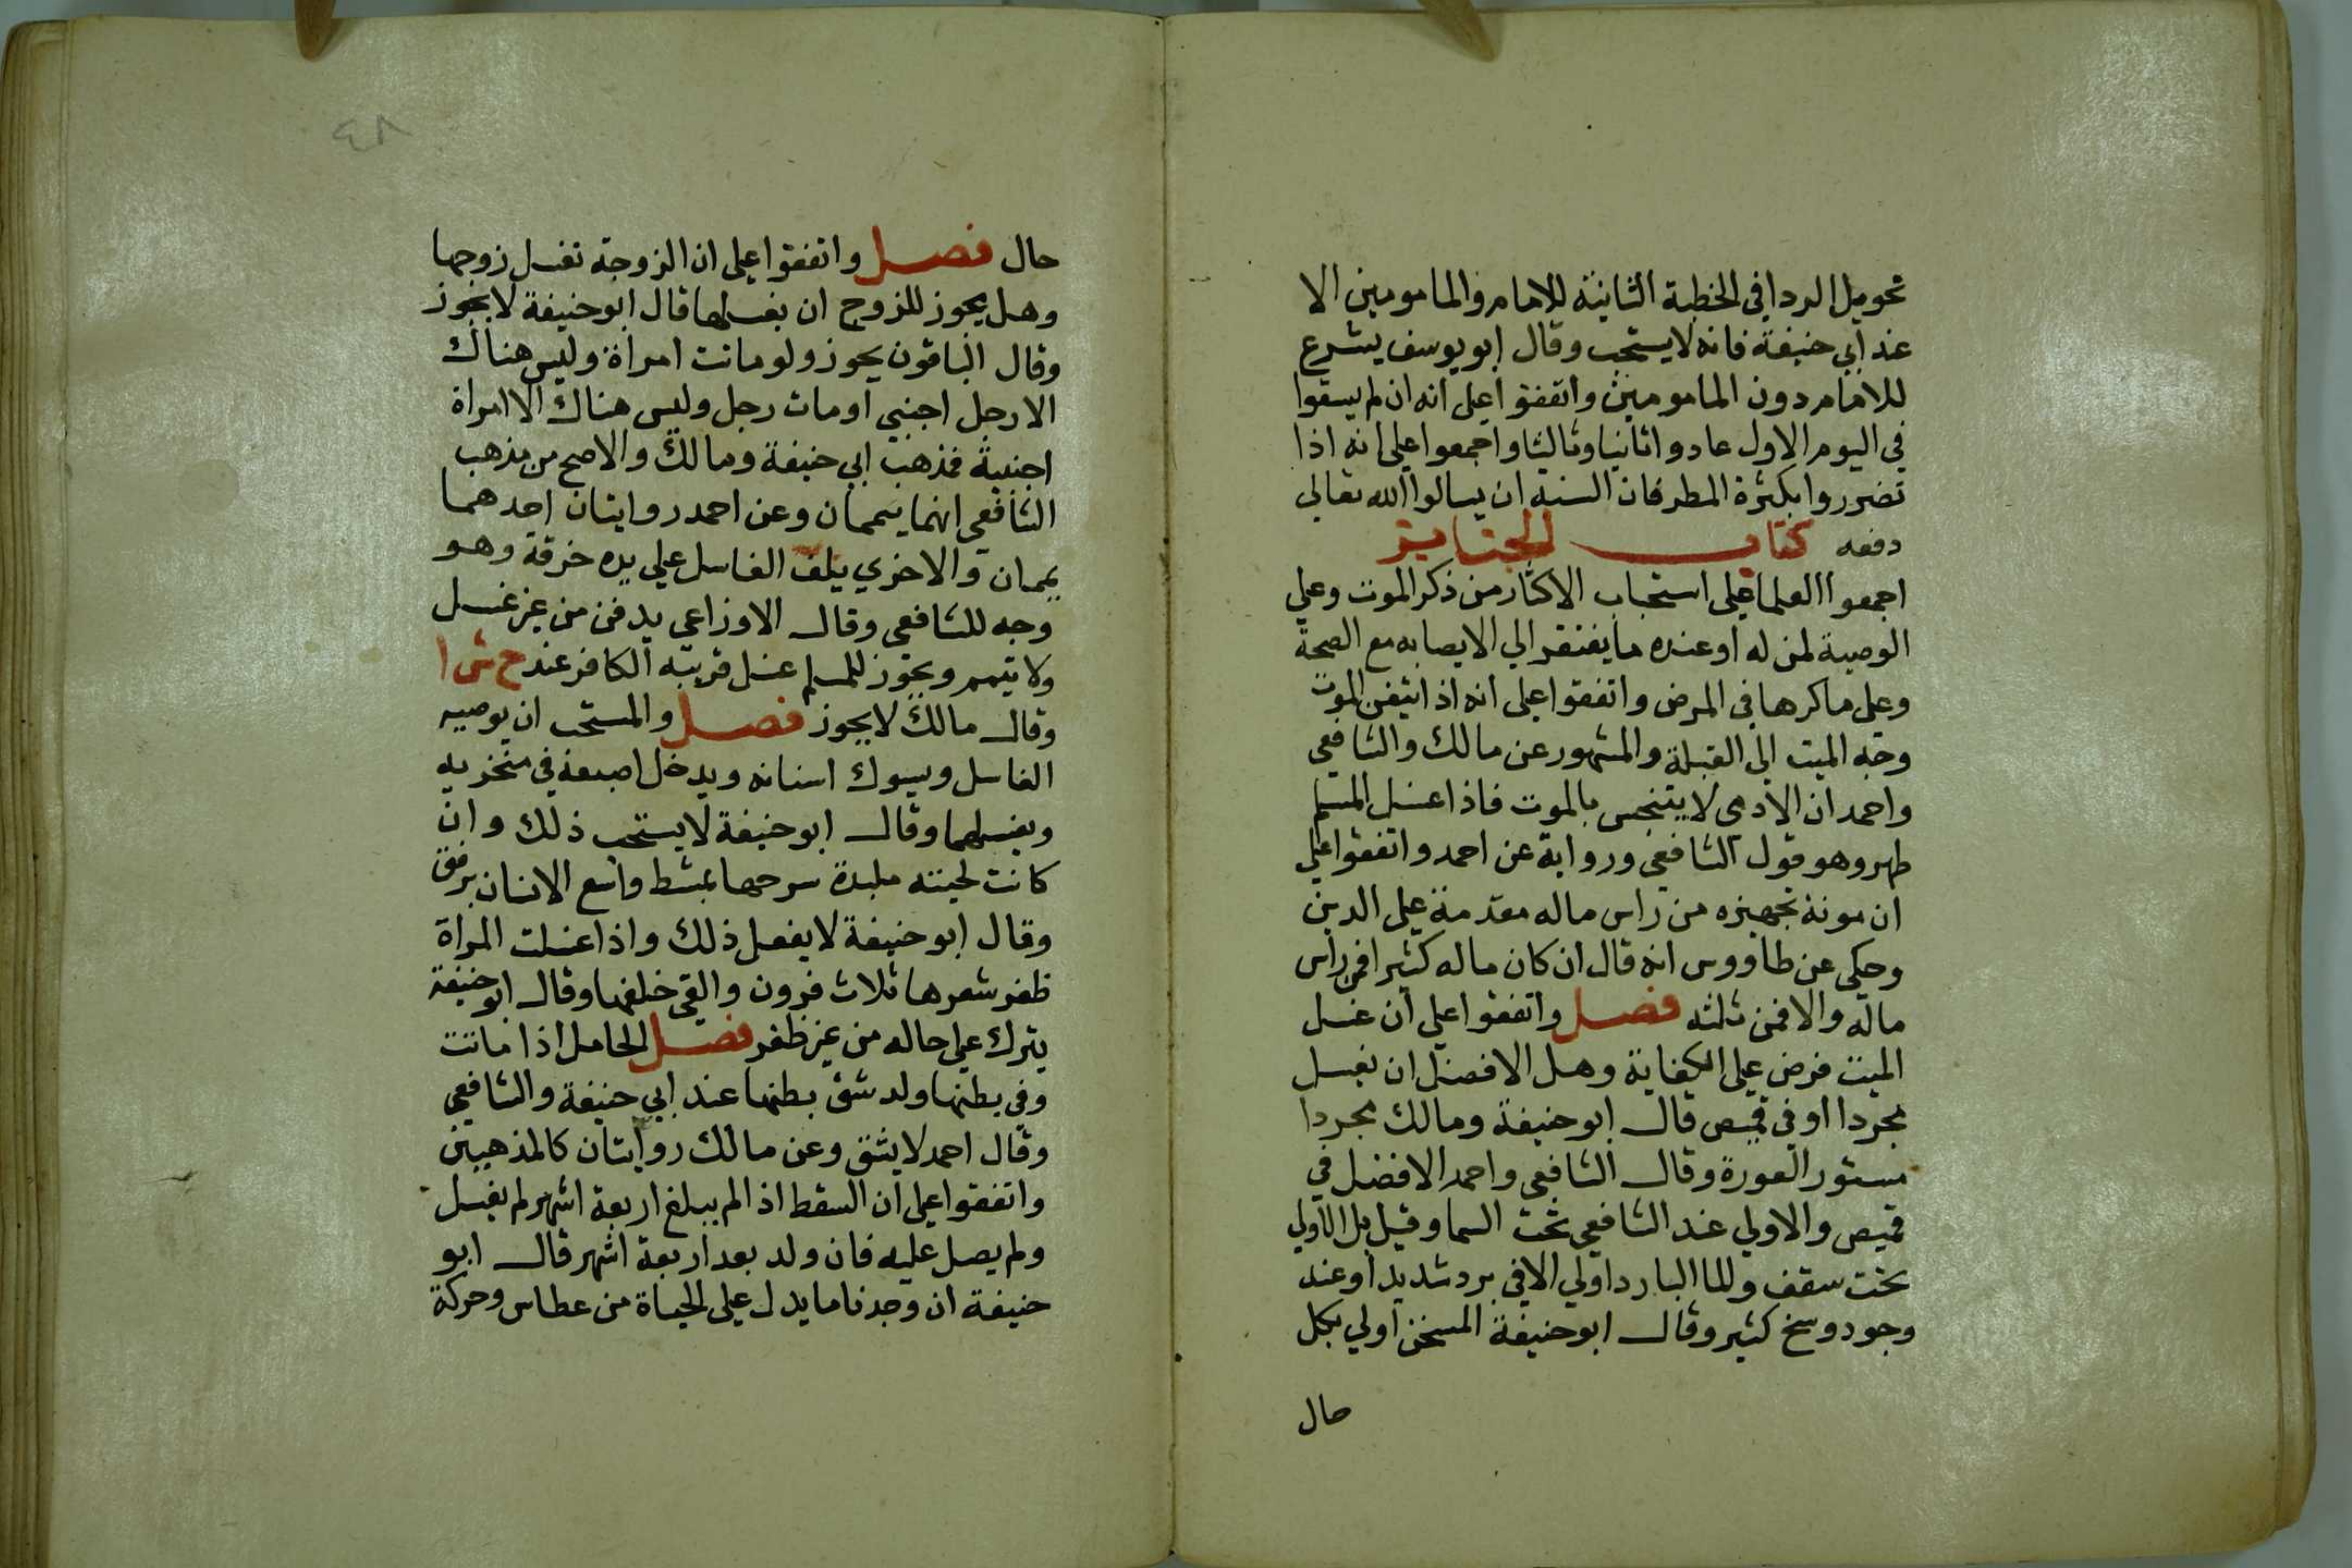 تحويل الردا في الخطبة الثانية للامام والمامومين الا
عند ابي حنيفة فانه لا يستحب وقال ابو يوسف يشرع
للامام دون المامومين واتفقوا علي انه ان لم يسقوا
في اليوم الاول عادوا ثانيا وثالثا واجمعوا علي انه اذا
تضرروا بكثرة المطر فان السنة ان يسالوا الله تعالي
دفعه كتاب الجنايز
اجمعوا العلما علي استحباب الاكثار من ذكر الموت وعلي
الوصية لمن له او عنده ما يفتقر الي الايصا به مع الصحة
وعلي ماكرها في المرض واتفقوا علي انه اذا تيقن الموت
وجه الميت الي القبلة والمشهور عن مالك والشافعي
واحمد ان الادمي لا يتنجس بالموت فاذا غسل المسلم
طهر وهو قول الشافعي ورواية عن احمد واتفقوا علي
ان مونة تجهيزه من راس ماله مقدمة علي الدين
وحكي عن طاووس انه قال ان كان ماله كثيرا فمن راس
ماله والا فمن ثلثه فصل واتفقوا علي ان غسل
الميت فرض علي الكفاية وهل الافضل ان يغسل
مجردا او في قميص قال ابو حنيفة ومالك مجردا
مستور العورة وقال الشافعي واحمد الافضل في
قميص والاولي عند الشافعي تحت السما وقيل بل الاولي
تحت سقف وللما البارد اولي الا في برد شديد او عند
وجود وسخ كثير وقال ابو حنيفة المسخن اولي بكل
حال
٤٨
حال فصل واتفقوا علي ان الزوجة تغسل زوجها
وهل يجوز للزوج ان يغسلها قال ابو حنيفة لا يجوز
وقال الباقون يجوز ولو ماتت امراة وليس هناك
الا رجل اجنبي او مات رجل وليس هناك الا امراة
اجنبية فمذهب ابي حنيفة ومالك والاصح من مذهب
الشافعي انهما ييممان وعن احمد روايتان احدهما
ييممان والاخري يلف الغاسل علي يده خرقة وهو
وجه للشافعي وقال الاوزاعي يدفن من غير غسل
ولا يتيمم ويجوز للمسلم غسل قريبه الكافر عند ح ش ا
وقال مالك لا يجوز فصل والمستحب ان يوصيه
الغاسل ويسوك اسنانه ويدخل اصبعه في منخريه
ويغسلهما وقال ابو حنيفة لا يستحب ذلك وان
كانت لحيته ملبدة سرحها بمشط واسع الاسنان برفق
وقال ابو حنيفة لا يفعل ذلك واذا غسلت المراة
ظفر شعرها ثلاث قرون والقي خلفها وقال ابو حنيفة
يترك علي حاله من غير ظفر فصل الحامل اذا ماتت
وفي بطنها ولد شق بطنها عند ابي حنيفة والشافعي
وقال احمد لا يشق وعن مالك روايتان كالمذهبين
واتفقوا علي ان السقط اذا لم يبلغ اربعة اشهر لم يغسل
ولم يصل عليه فان ولد بعد اربعة اشهر قال ابو
حنيفة ان وجدنا ما يدل علي الحياة من عطاس وحركة